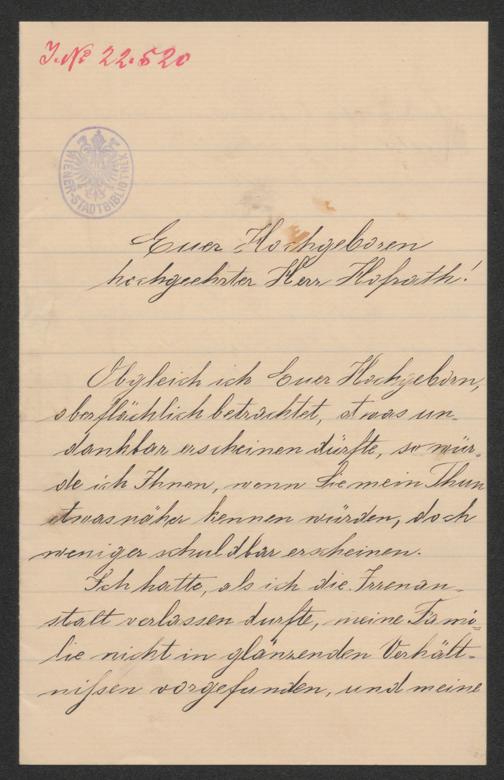 J. N. 22.520
WIENER-STADTBIBLIOTHEK
Euer Hochgeboren
hochgeehrter Herr Hofrath!
Obgleich ich Euer Hochgeborn,
oberflächlich betrachtet, etwas un-
dankbar erscheinen dürfte, so wür-
de ich Ihnen, wenn Sie mein Thun
etwas näher kennen würden, doch
weniger schuldbar erscheinen.
Ich hatte, als ich die Irrenan-
stalt verlassen durfte, meine Fami-
lie nicht in glänzenden Verhält-
nißen vorgefunden, und meine